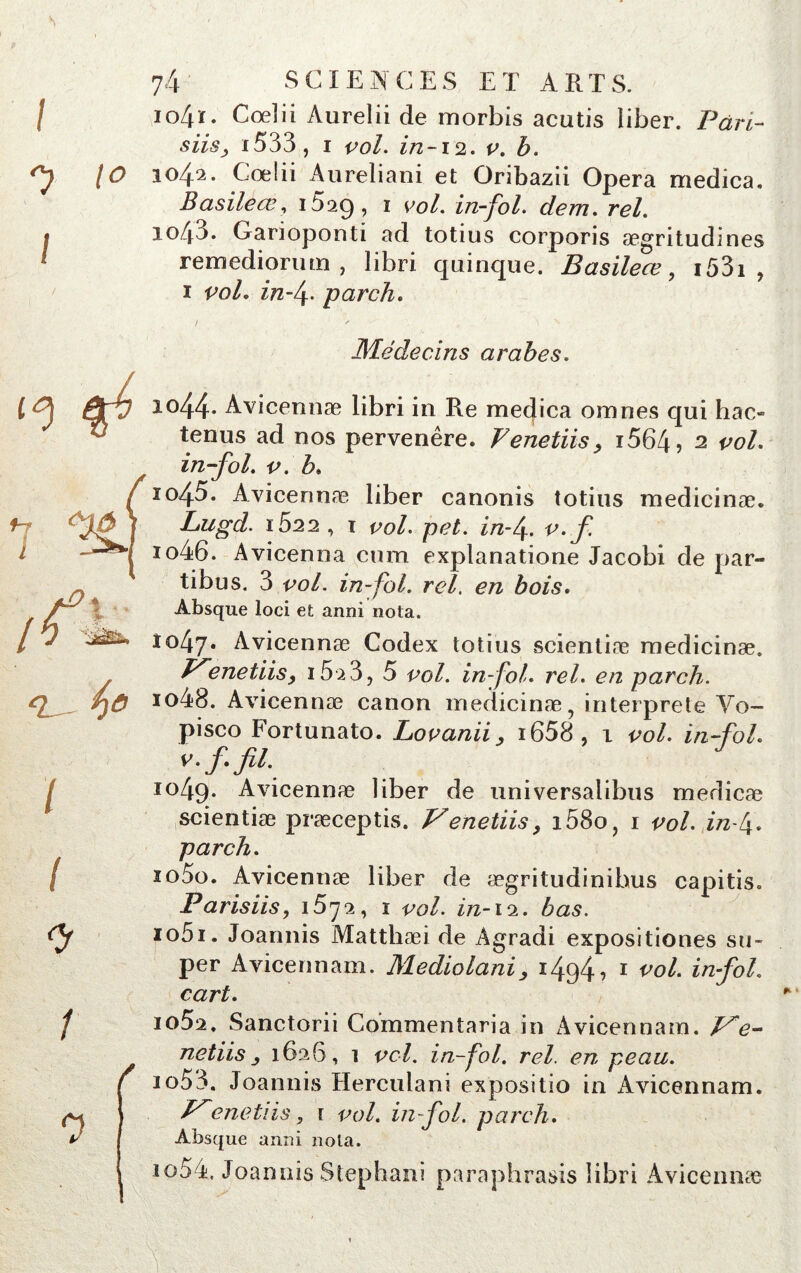 74 SCIENCES ET ARTS.
1041. Cœlii Aurelii de morbis acutis liber. Pari-
siis, 1533, 1 vol. in-12. v. b.
1042. Cœlii Aureliani et Oribazii Opera medica.
Basileæ, 1529, 1 vol. in-fol. dem. rel.
1043. Garioponti ad totius corporis ægritudines
remediorum, libri quinque. Basileæ, 1531,
1 vol. in-4. parch.
Médecins arabes.
1044. Avicennæ libri in Re medica omnes qui hac-
tenus ad nos pervenêre. Venetiis, 1564, 2 vol.
in-fol. v. b.
1045. Avicennæ liber canonis totius medicinæ.
Lugd. 1522, 1 vol. pet. in-4. v. f.
1046. Avicenna cum explanatione Jacobi de par-
tibus. 3 vol. in-fol. rel. en bois.
Absque loci et anni nota.
1047. Avicennæ Codex totius scientiæ medicinæ.
Venetiis, 1523, 5 vol. in-fol. rel. en parch.
1048. Avicennæ canon medicinæ, interprete Vo-
pisco Fortunato. Lovanii, 1658, 1 vol. in-fol.
v. f. fil.
1049. Avicennæ liber de universalibus medicæ
scientiæ præceptis. Venetiis, 1580, 1 vol. in-4.
parch.
1050. Avicennæ liber de ægritudinibus capitis.
Parisiis, 1572, 1 vol. in-12. bas.
1051. Joannis Matthæi de Agradi expositiones su-
per Avicennam. Mediolani, 1494, 1 vol. in-fol.
cart.
1052. Sanctorii Commentaria in Avicennam. Ve-
netiis, 1626, 1 vol. in-fol. rel. en peau.
1053. Joannis Herculani expositio in Avicennam.
Venetiis, 1 vol. in-fol. parch.
Absque anni nota.
1054. Joannis Stephani paraphrasis libri Avicennæ